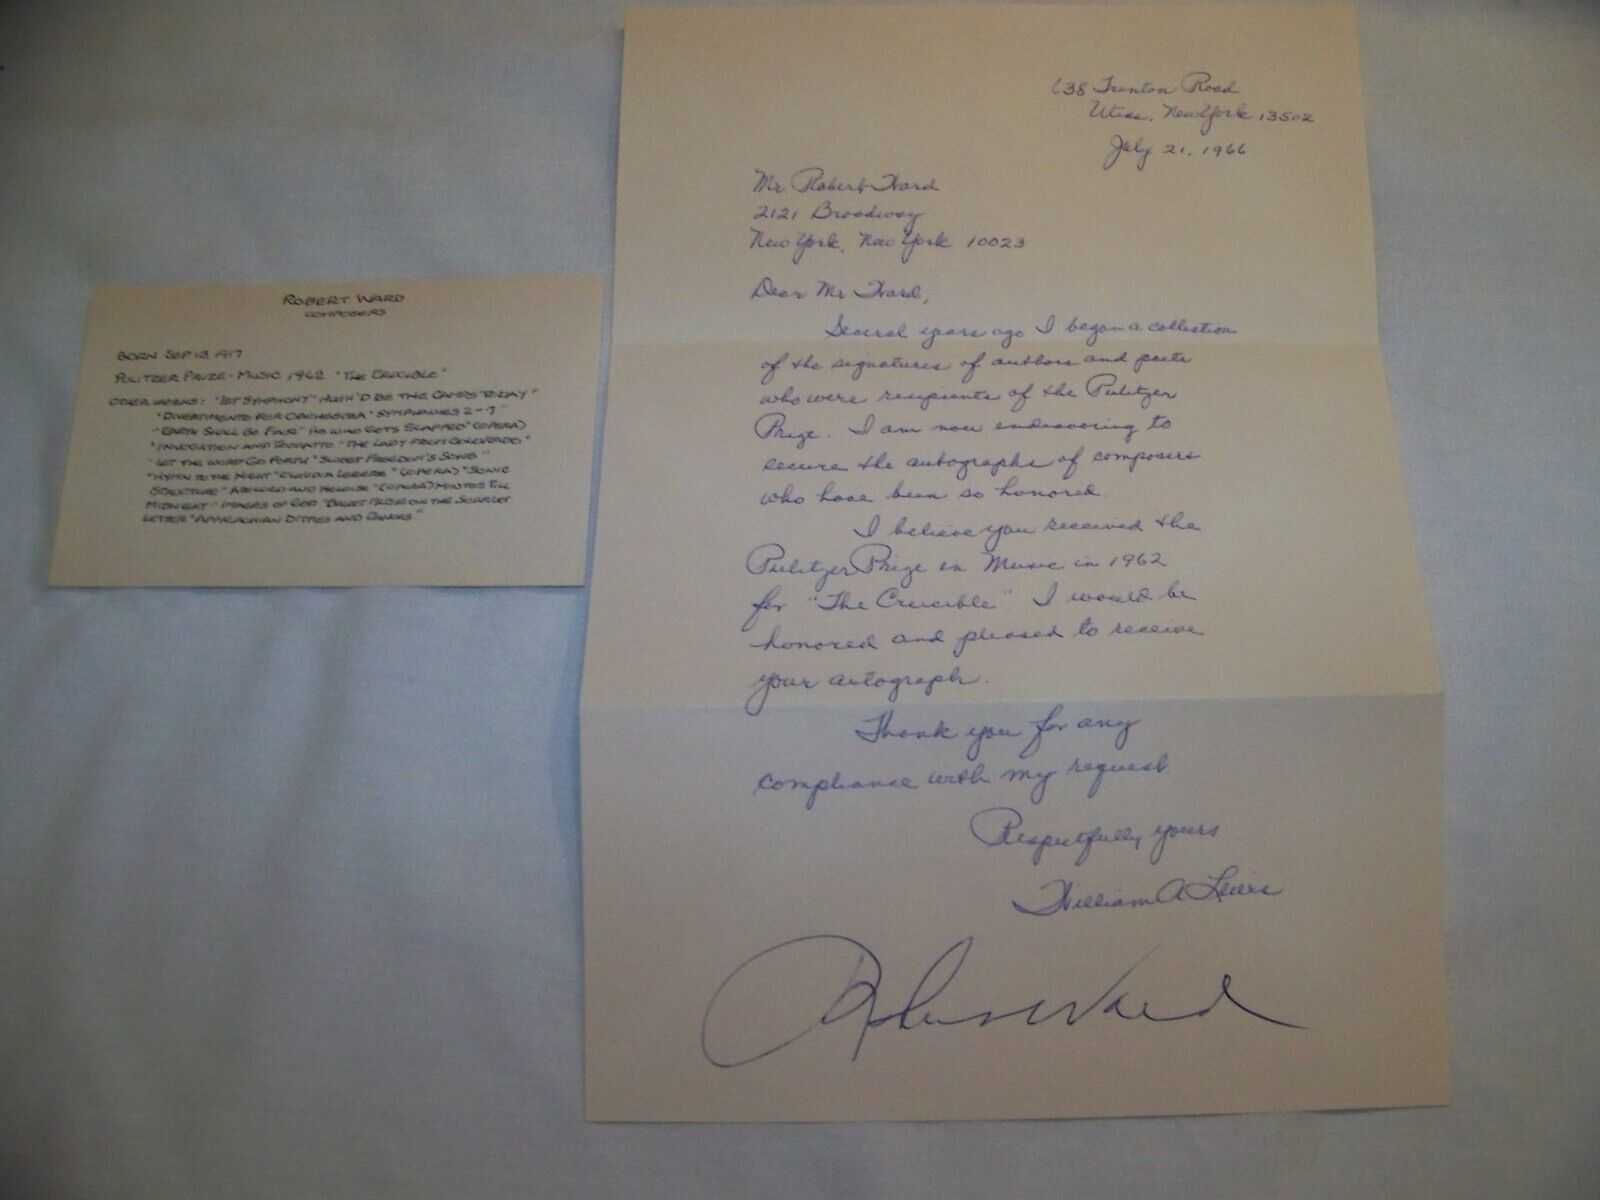 ROBERT WARD
COMPOSERS
BORN SEP 13, 1917
PULITZER PRIZE - MUSIC 1962 "THE CRUCIBLE"
OTHER WORKS: "1ST SYMPHONY" HUSH'D BE THE CAMPS TODAY"
"DIVERTIMENTO FOR ORCHESTRA" SYMPHONNES 2-7"
"EARTH SHALL BE FAIR" HE WHO GETS SLAPPED" (OPERA)
"INVOCATION AND "THE LADY FROM COLORADO"
"LET THE WORD GO FORTH "SWEET FREEDOM'S SONG"
"HYMN TO THE NIGHT" "CLAUDIA LEGARE" (OPERA) "SONIC
STRUCTURE" AND HELOISE" (OPERA) MINUTES TILL
MIDNIGHT - IMAGES OF GOD "BALLET MUSIC ON THE SCARLET
LETTER "APPALACHIAN DITTIES AND DANCES"
638 Trenton Road
Utica, New York 13502
July 21, 1966
Mr Robert Ward
2121 Broadway
New York, New York 10023
Dear Mr Ward,
Several years ago I began a collection
of the signatures of authors and poets
who were recipients of the Pulitzer
Prize. I am now endeavoring to
secure the autographs of composers
who have been so honored.
I believe you received the
Pulitzer Prize in Music in 1962
for "The Crucible". I would be
honored and pleased to receive
your autograph.
Thank you for any
compliance with my request.
Respectfully yours
William A Lewis
Robert Ward